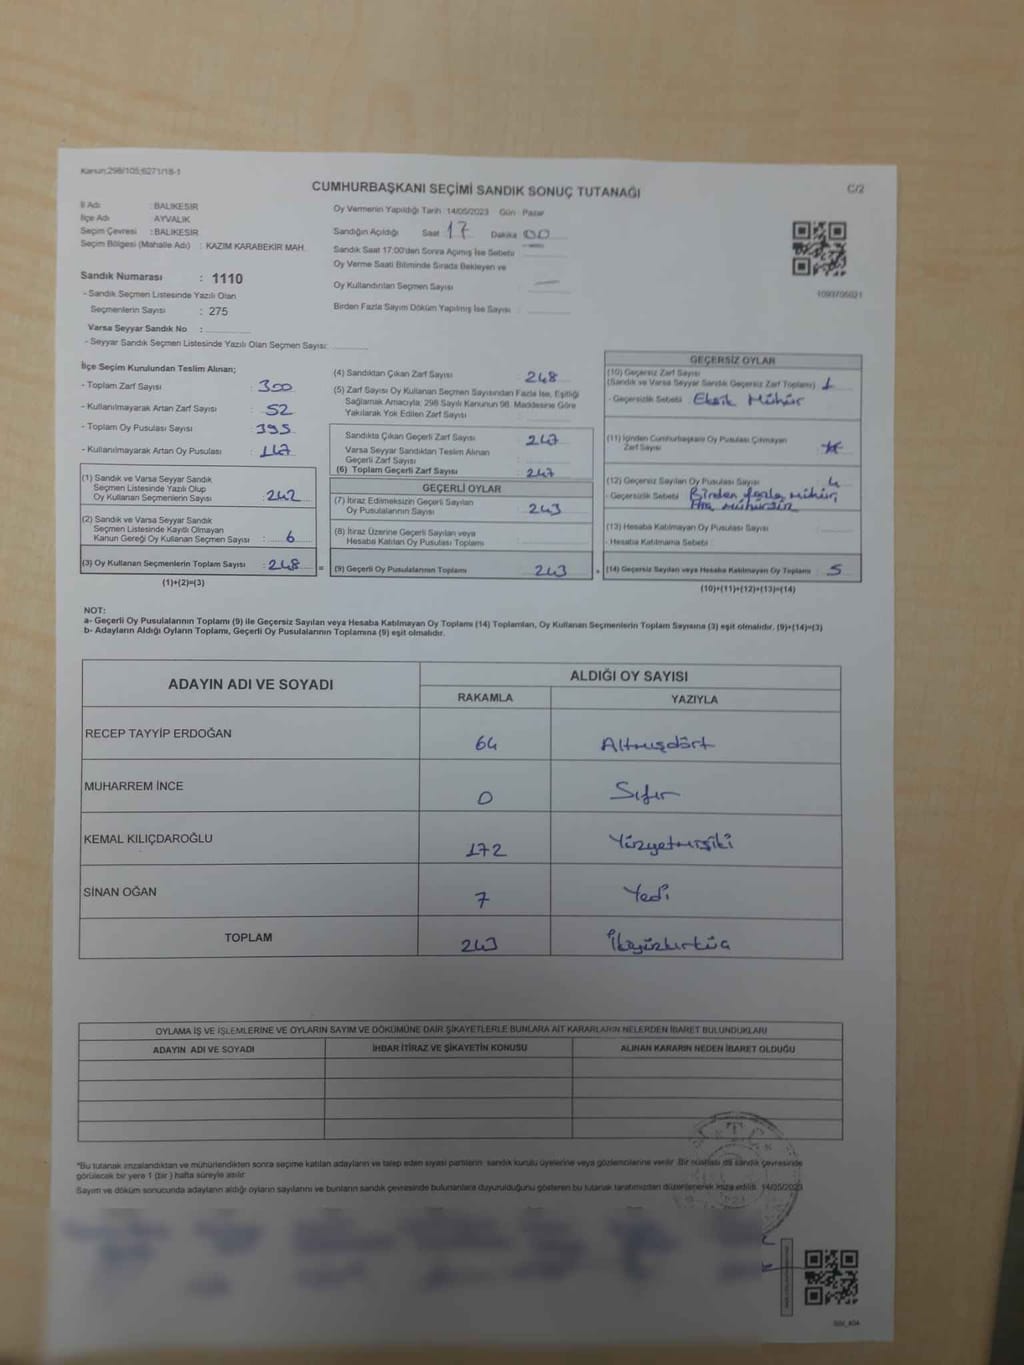 Kanun;298/105;6271/18-1
CUMHURBAŞKANI SEÇİMİ SANDIK SONUÇ TUTANAĞI
C/2
İl Adı : BALIKESİR
İlçe Adı : AYVALIK
Seçim Çevresi : BALIKESİR
Seçim Bölgesi (Mahalle Adı) : KAZIM KARABEKİR MAH.
Sandık Numarası : 1110
- Sandık Seçmen Listesinde Yazılı Olan
Seçmenlerin Sayısı : 275
Varsa Seyyar Sandık No :
- Seyyar Sandık Seçmen Listesinde Yazılı Olan Seçmen Sayısı:
Oy Vermenin Yapıldığı Tarih :14/05/2023 Gün : Pazar
Sandığın Açıldığı Saat 17 Dakika 00
Sandık Saat 17:00'den Sonra Açılmış İse Sebebi
Oy Verme Saati Bitiminde Sırada Bekleyen ve
Oy Kullandırılan Seçmen Sayısı :
Birden Fazla Sayım Döküm Yapılmış İse Sayısı :
1093705021
İlçe Seçim Kurulundan Teslim Alınan;
- Toplam Zarf Sayısı : 300
- Kullanılmayarak Artan Zarf Sayısı : 52
- Toplam Oy Pusulası Sayısı : 395
- Kullanılmayarak Artan Oy Pusulası : 147
(1) Sandık ve Varsa Seyyar Sandık
Seçmen Listesinde Yazılı Olup
Oy Kullanan Seçmenlerin Sayısı : 242
(2) Sandık ve Varsa Seyyar Sandık
Seçmen Listesinde Kayıtlı Olmayan
Kanun Gereği Oy Kullanan Seçmen Sayısı : 6
(3) Oy Kullanan Seçmenlerin Toplam Sayısı : 248
(1)+(2)=(3)
(4) Sandıktan Çıkan Zarf Sayısı : 248
(5) Zarf Sayısı Oy Kullanan Seçmen Sayısından Fazla İse, Eşitliği
Sağlamak Amacıyla, 298 Sayılı Kanunun 98. Maddesine Göre
Yakılarak Yok Edilen Zarf Sayısı
Sandıkta Çıkan Geçerli Zarf Sayısı : 247
Varsa Seyyar Sandıktan Teslim Alınan
Geçerli Zarf Sayısı
(6) Toplam Geçerli Zarf Sayısı : 247
GEÇERLİ OYLAR
(7) İtiraz Edilmeksizin Geçerli Sayılan
Oy Pusulalarının Sayısı : 243
(8) İtiraz Üzerine Geçerli Sayılan veya
Hesaba Katılan Oy Pusulası Toplamı :
(9) Geçerli Oy Pusulalarının Toplamı : 243
GEÇERSİZ OYLAR
(10) Geçersiz Zarf Sayısı
(Sandık ve Varsa Seyyar Sandık Geçersiz Zarf Toplamı) : 1
- Geçersizlik Sebebi : Eksik Mühür
(11) İçinden Cumhurbaşkanı Oy Pusulası Çıkmayan
Zarf Sayısı :
(12) Geçersiz Sayılan Oy Pusulası Sayısı : 4
- Geçersizlik Sebebi : Birden fazla mühür,
mühürsüz
(13) Hesaba Katılmayan Oy Pusulası Sayısı :
- Hesaba Katılmama Sebebi :
(14) Geçersiz Sayılan veya Hesaba Katılmayan Oy Toplamı : 5
(10)+(11)+(12)+(13)=(14)
NOT:
a- Geçerli Oy Pusulalarının Toplamı (9) ile Geçersiz Sayılan veya Hesaba Katılmayan Oy Toplamı (14) Toplamları, Oy Kullanan Seçmenlerin Toplam Sayısına (3) eşit olmalıdır. (9)+(14)=(3)
b- Adayların Aldığı Oyların Toplamı, Geçerli Oy Pusulalarının Toplamına (9) eşit olmalıdır.
ADAYIN ADI VE SOYADI
ALDIĞI OY SAYISI
RAKAMLA YAZIYLA
RECEP TAYYİP ERDOĞAN 64 Altmışdört
MUHARREM İNCE 0 Sıfır
KEMAL KILIÇDAROĞLU 172 Yüzyetmişiki
SİNAN OĞAN 7 Yedi
TOPLAM 243 İkiyüzkırküç
OYLAMA İŞ VE İŞLEMLERİNE VE OYLARIN SAYIM VE DÖKÜMÜNE DAİR ŞİKAYETLERLE BUNLARA AİT KARARLARIN NELERDEN İBARET BULUNDUKLARI
ADAYIN ADI VE SOYADI İHBAR İTİRAZ VE ŞİKAYETİN KONUSU ALINAN KARARIN NEDEN İBARET OLDUĞU
*Bu tutanak imzalandıktan ve mühürlendikten sonra seçime katılan adayların ve talep eden siyasi partilerin sandık kurulu üyelerine veya gözlemcilerine verilir. Bir nüshası da sandık çevresinde
görülecek bir yere 1 (bir) hafta süreyle asılır.
Sayım ve döküm sonucunda adayların aldığı oyların sayılarını ve bunların sandık çevresinde bulunanlara duyurulduğunu gösteren bu tutanak tarafımızdan düzenlenerek imza edildi. 14/05/2023